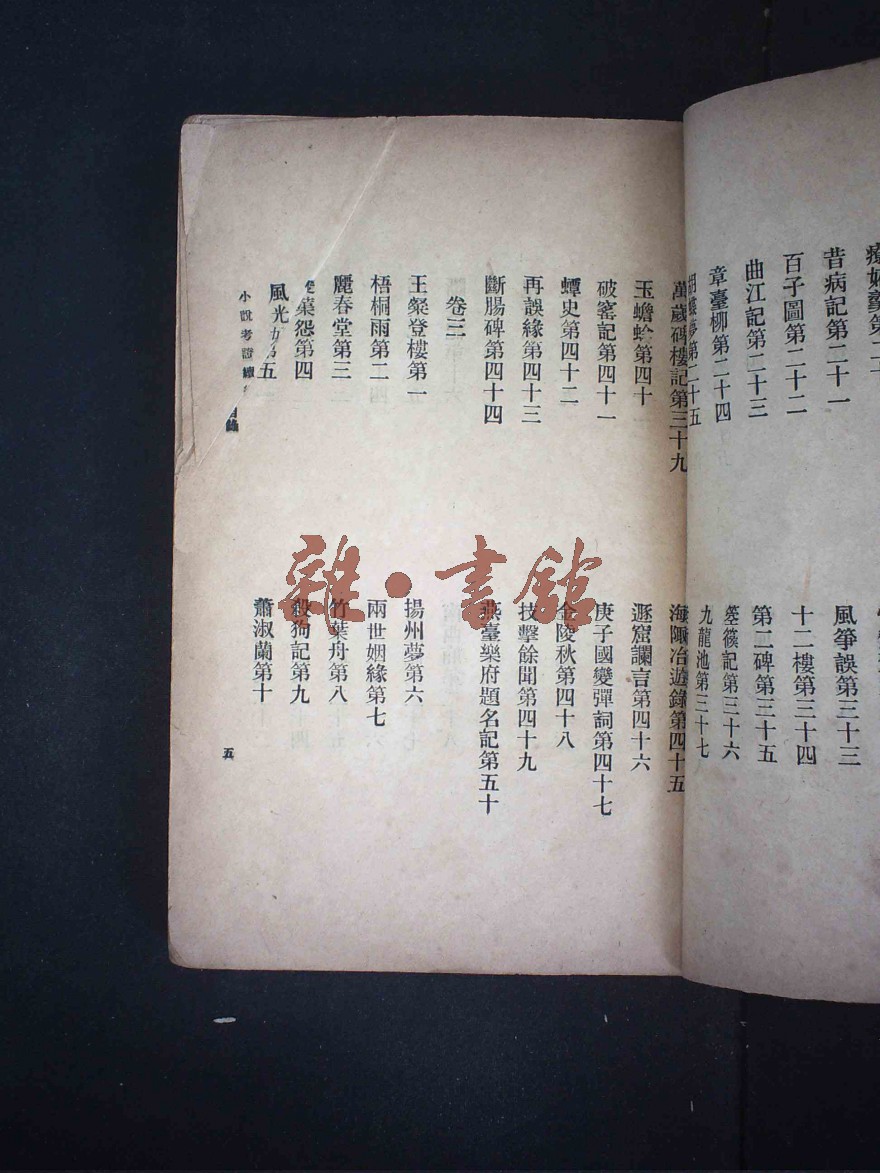 昔病記第二十一
百子圖第二十二
曲江記第二十三
章臺柳第二十四
第二十五
風箏誤第三十三
十二樓第三十四
第二碑第三十五
箜篌記第三十六
九龍池第三十七
萬歲碼樓記第三十九
玉蟾蜍第四十
破窰記第四十一
蟫史第四十二
再誤緣第四十三
斷腸碑第四十四
海陬冶遊錄第四十五
遯窟讕言第四十六
庚子國變彈詞第四十七
金陵秋第四十八
技擊餘聞第四十九
燕臺樂府題名記第五十
卷三
王粲登樓第一
梧桐雨第二
麗春堂第三
葉怨第四
風光 第五
揚州夢第六
兩世姻緣第七
竹葉舟第八
殺狗記第九
蕭淑蘭第十
小說考證續 目錄
五
雜·書館